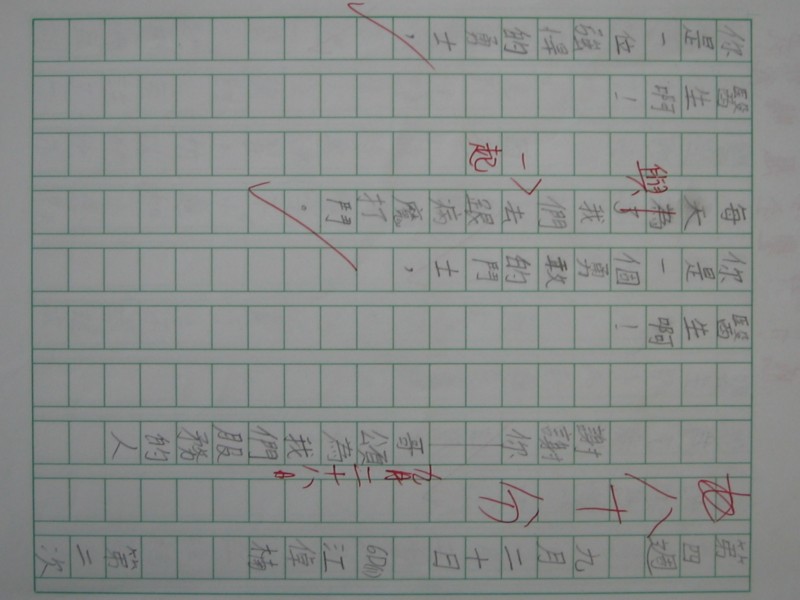 第四週 九月二十日 江 第二次
八十分
九月二十八日
謝謝你——為我們服務的人
醫生啊！
你是一個勇敢的鬥士，
每天為我們去跟病魔打鬥。
與
一起
醫生啊！
你是一位強悍的勇士，